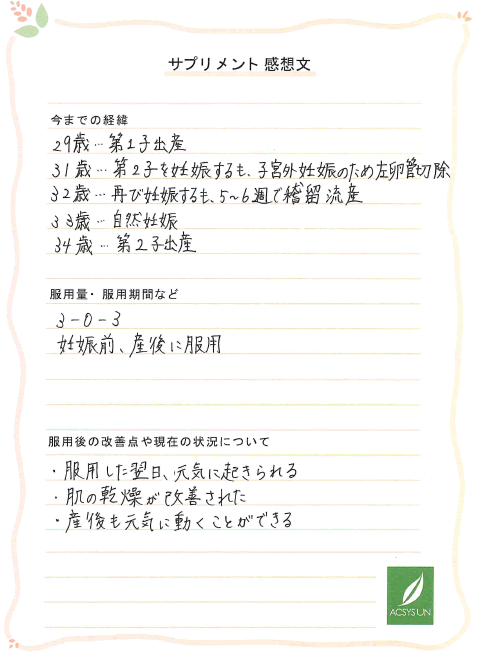 サプリメント 感想文
今までの経緯
29歳… 第1子出産
31歳… 第2子を妊娠するも、子宮外妊娠のため左卵管切除
32歳… 再び妊娠するも、5〜6週で稽留流産
33歳… 自然妊娠
34歳… 第2子出産
服用量・服用期間など
3-0-3
妊娠前、産後に服用
服用後の改善点や現在の状況について
・服用した翌日、元気に起きられる
・肌の乾燥が改善された
・産後も元気に動くことができる
ACSYSUN